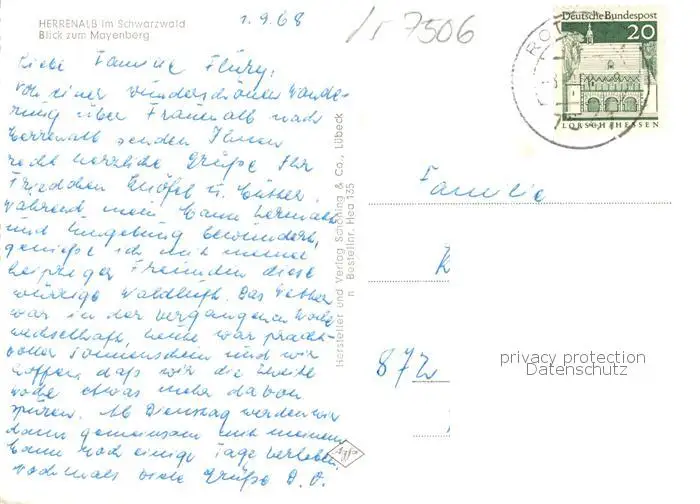 HERRENALB im Schwarzwald
Blick zum Mayenberg
1.9.68
7506
Liebe Familie Flury,
von einer wunderschönen Wande-
rung über Frauenalb nach
Herrenalb senden Ihnen
recht herzliche Grüße Ihr
Friedchen u.
Während mein Mann Herrenalb
und Umgebung bewundert,
genieße ich mit meinen
Leipziger Freunden diese
würzige Waldluft. Das Wetter
war in der vergangenen Woche
wechselhaft, heute war pracht-
voller Sonnenschein und wir
hoffen, daß wir die zweite
Woche etwas mehr davon
spüren. Ab Dienstag werden wir
dann gemeinsam mit meinem
Mann noch einige Tage verleben.
Nochmals viele Grüße D. O.
Hersteller und Verlag Schöning & Co., Lübeck
Bestellnr. Hea 135
Deutsche Bundespost
20
LORSCH/HESSEN
Familie
872
privacy protection
Datenschutz